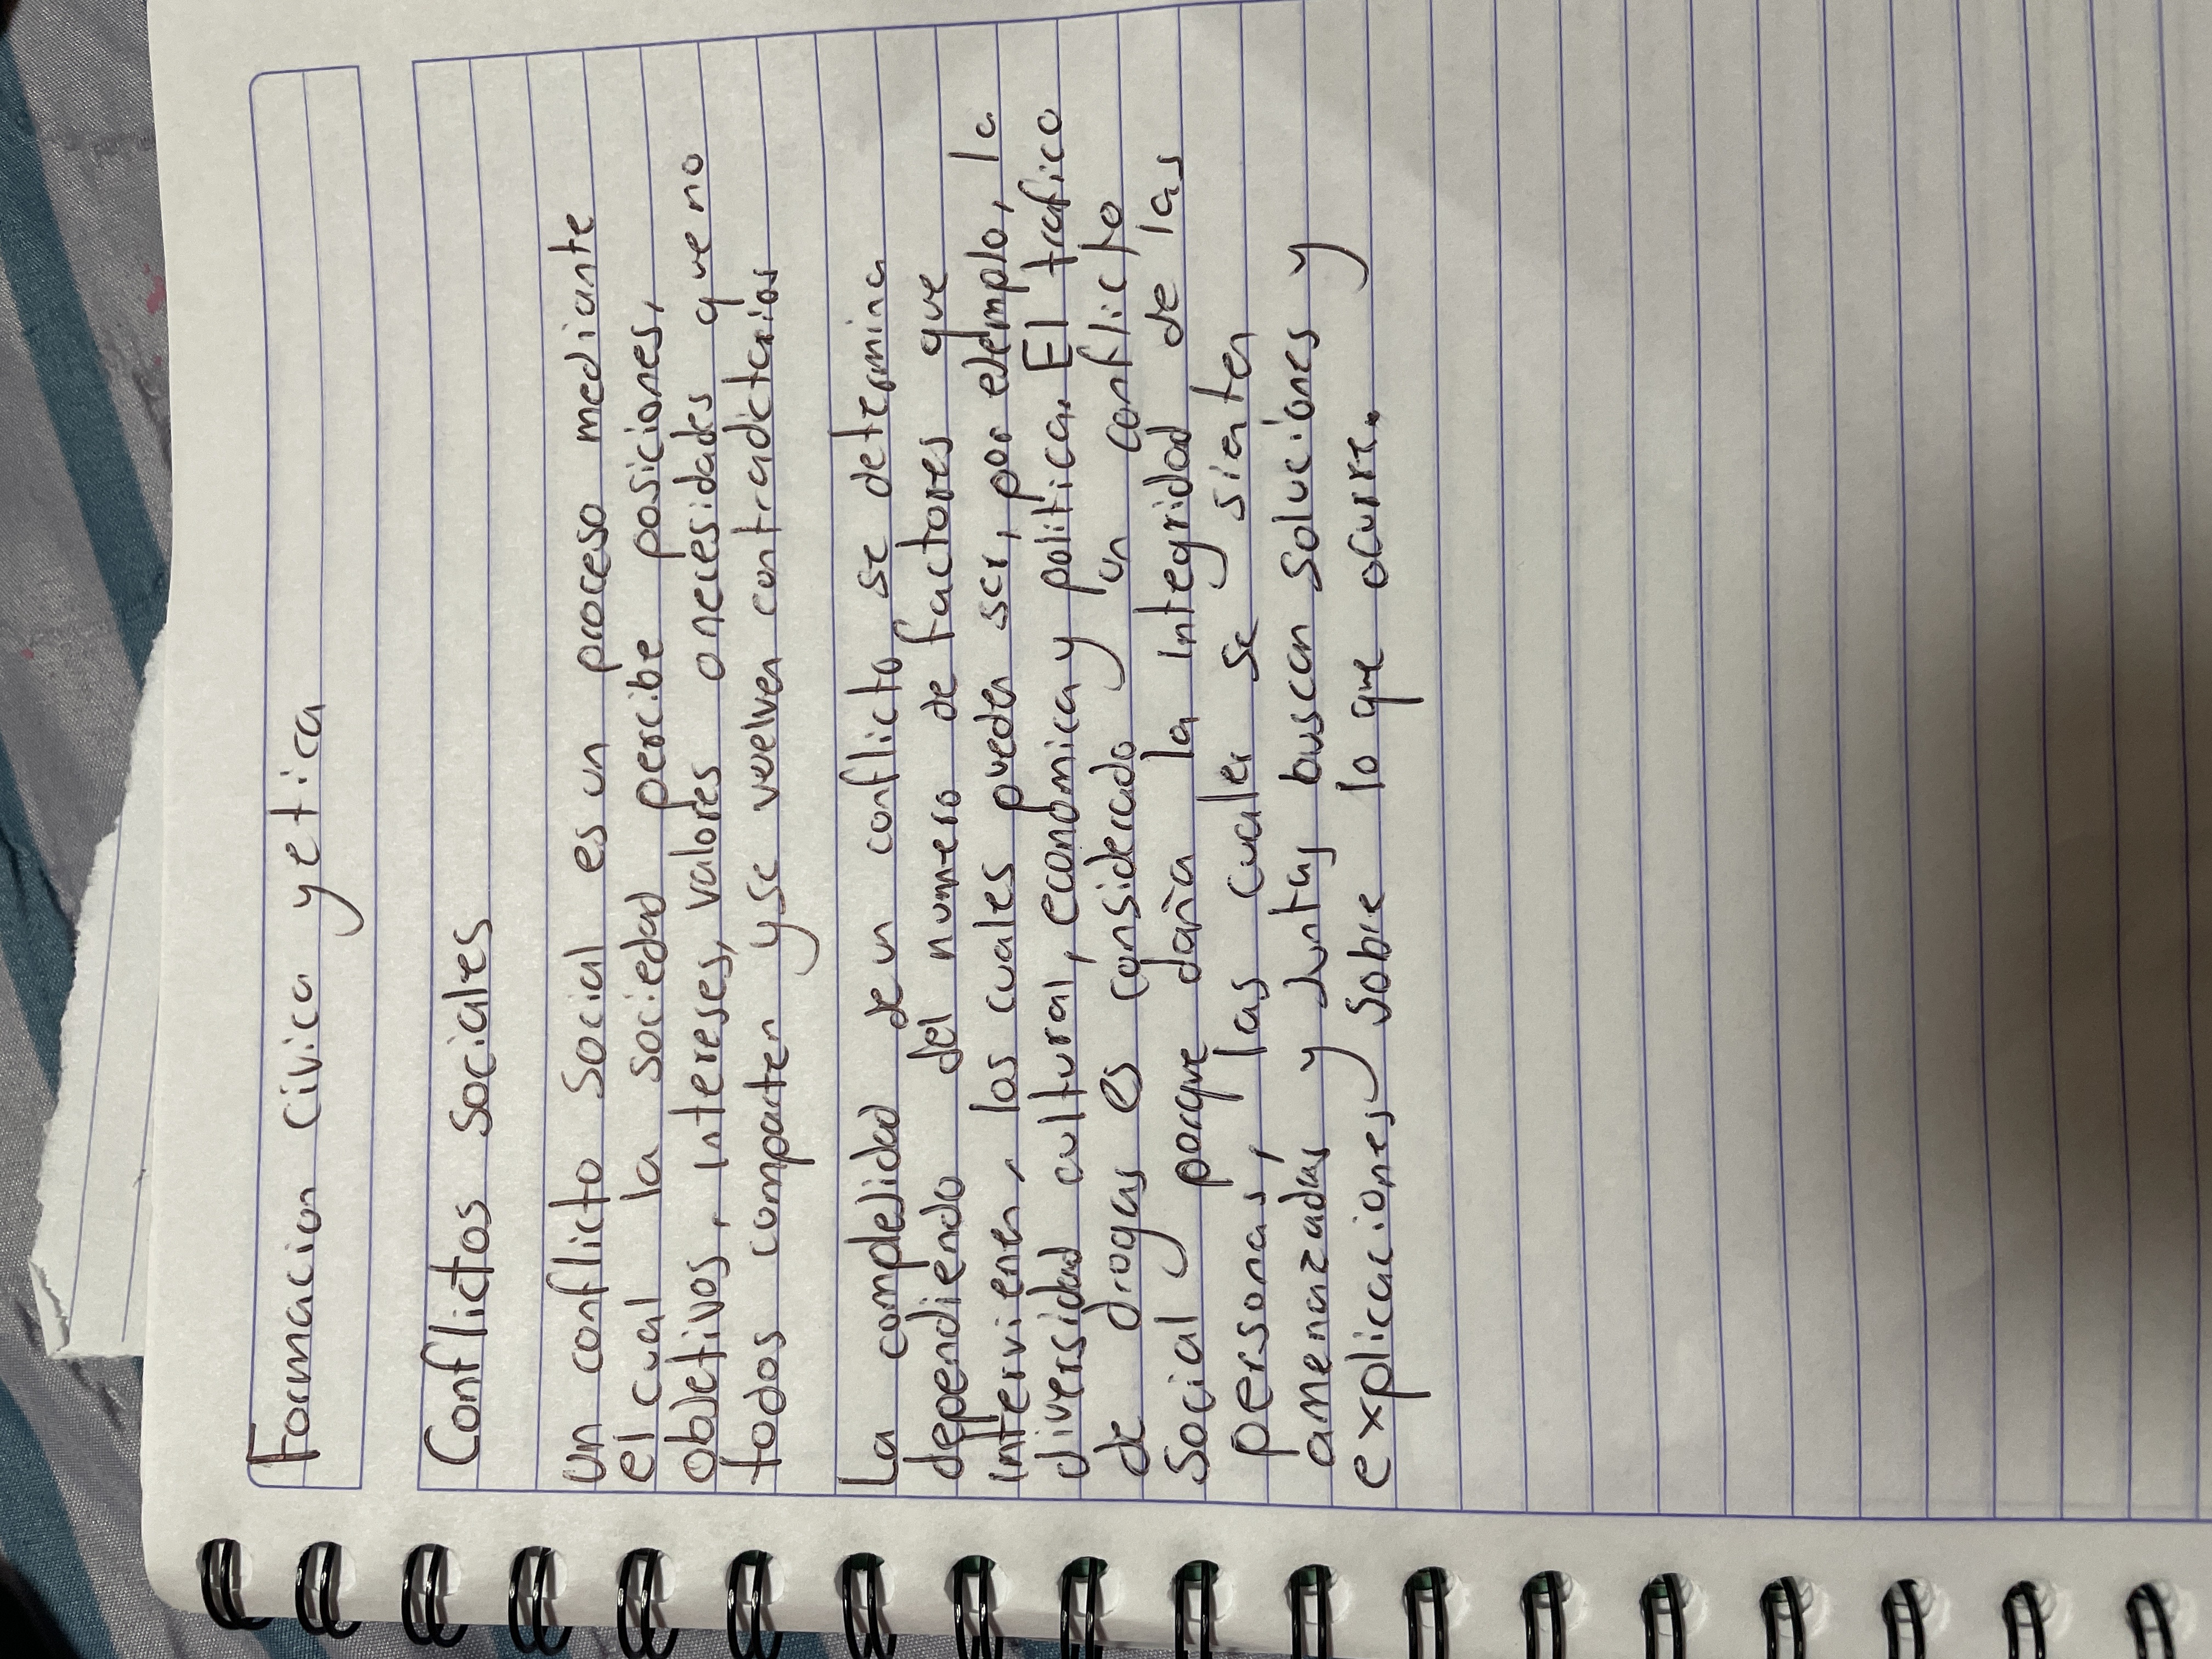 Formacion civica y etica
Conflictos sociales
Un conflicto social es un proceso mediante
el cual la sociedad percibe posiciones,
objetivos, intereses, valores o necesidades que no
todos comparten y se vuelven contradictorios
La complejidad de un conflicto se determina
dependiendo del numero de factores que
intervienen, los cuales pueden ser, por ejemplo, la
diversidad cultural, economica y politica. El trafico
de drogas es considerado un conflicto
social porque daña la integridad de las
personas, las cuales se sienten
amenazadas y juntas buscan soluciones y
explicaciones sobre lo que ocurre.